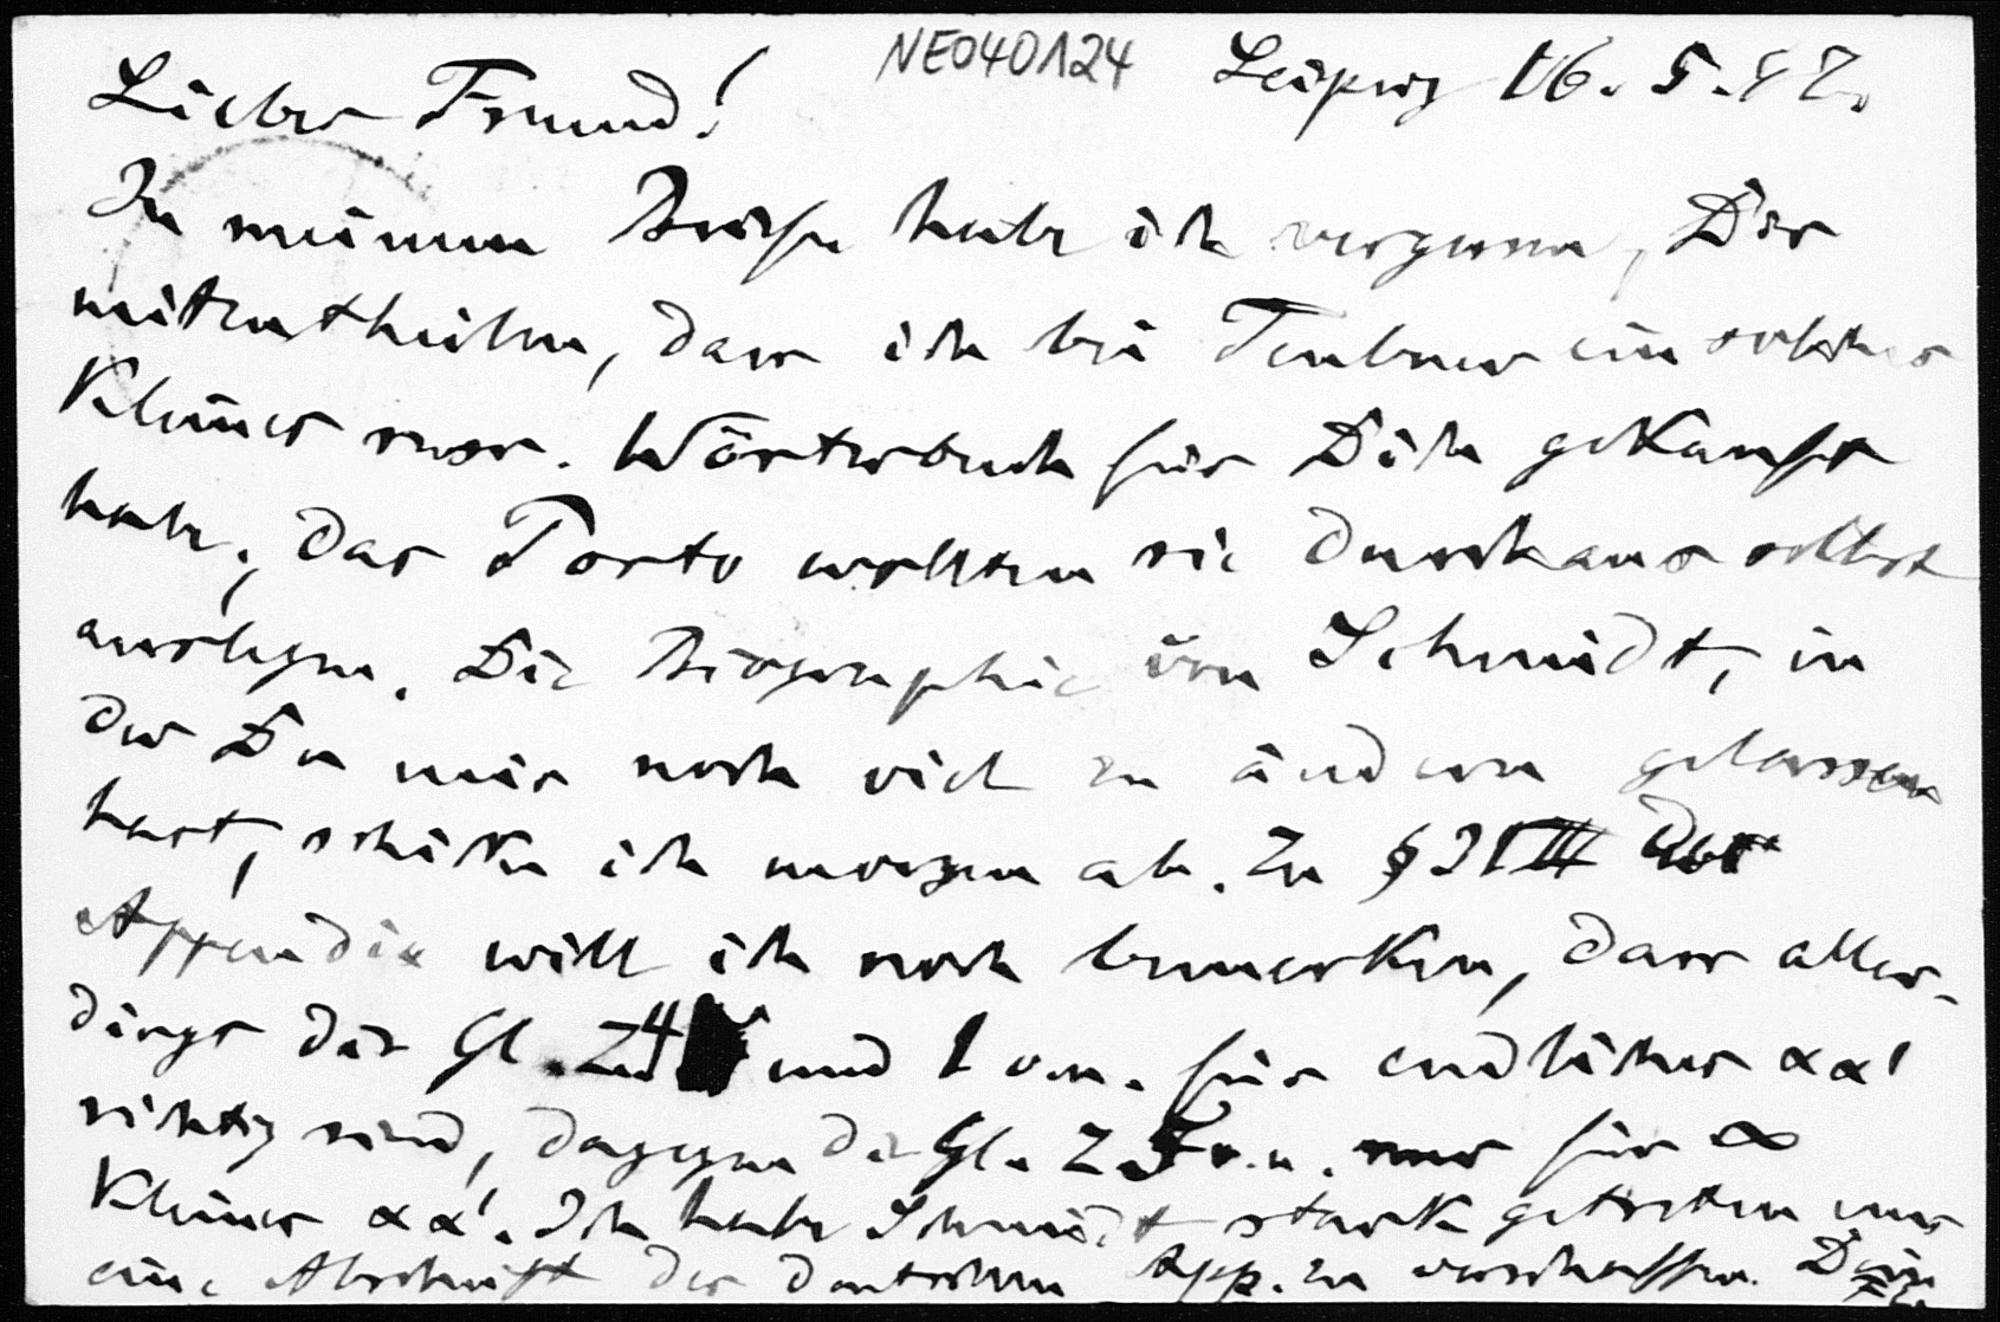 NE040124 Leipzig 16. 5. 97.
Lieber Freund!
In meinem Briefe habe ich vergessen, Dir
mitzutheilen, dass ich bei Teubner ein solches
kleines russ. Wörterbuch für Dich gekauft
habe; das Porto wollten sie durchaus selbst
auslegen. Die Biographie von Schmidt, in
der Du mir noch viel zu ändern gelassen
hast, schicke ich morgen ab. Zu § 31 des
Appendix will ich noch bemerken, dass aller-
dings die Gl. Z. 4 und 1 v.u. für endliches αα'
richtig sind, dagegen die Gl. Z. 5 v.u. nur für ∞
kleines αα'. Ich habe Schmidt stark getreten uns
eine Abschrift der deutschen App. zu verschaffen. Dein